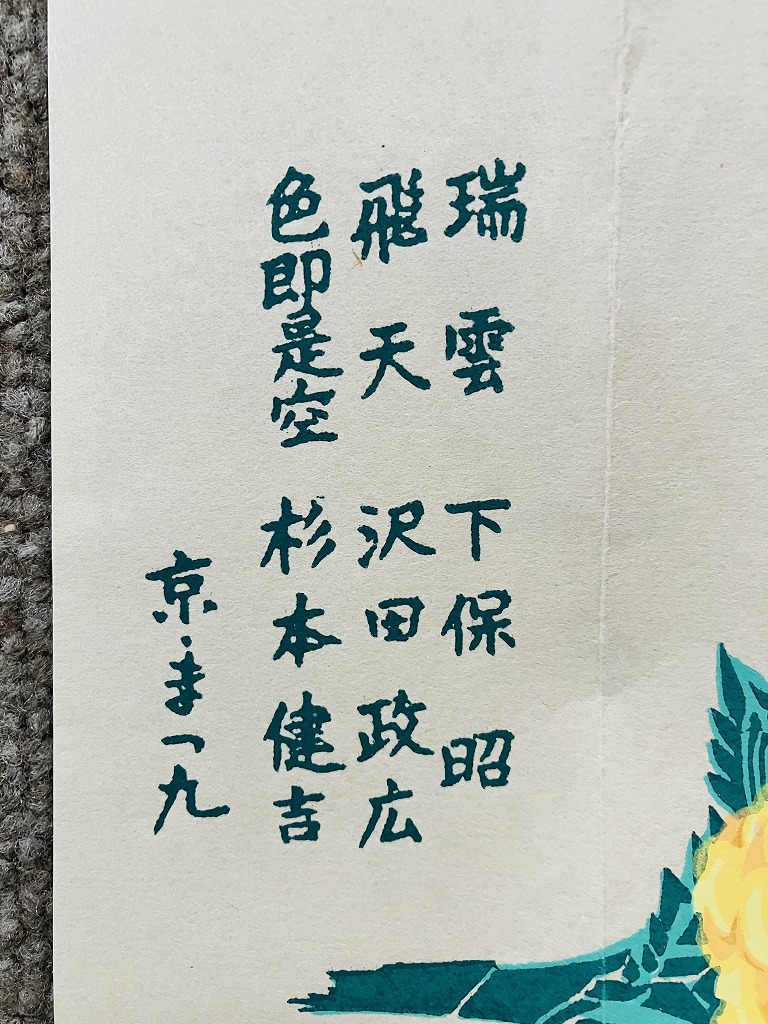 瑞雲 下保 昭
飛天 沢田政広
色即是空 杉本健吉
京・まつ九